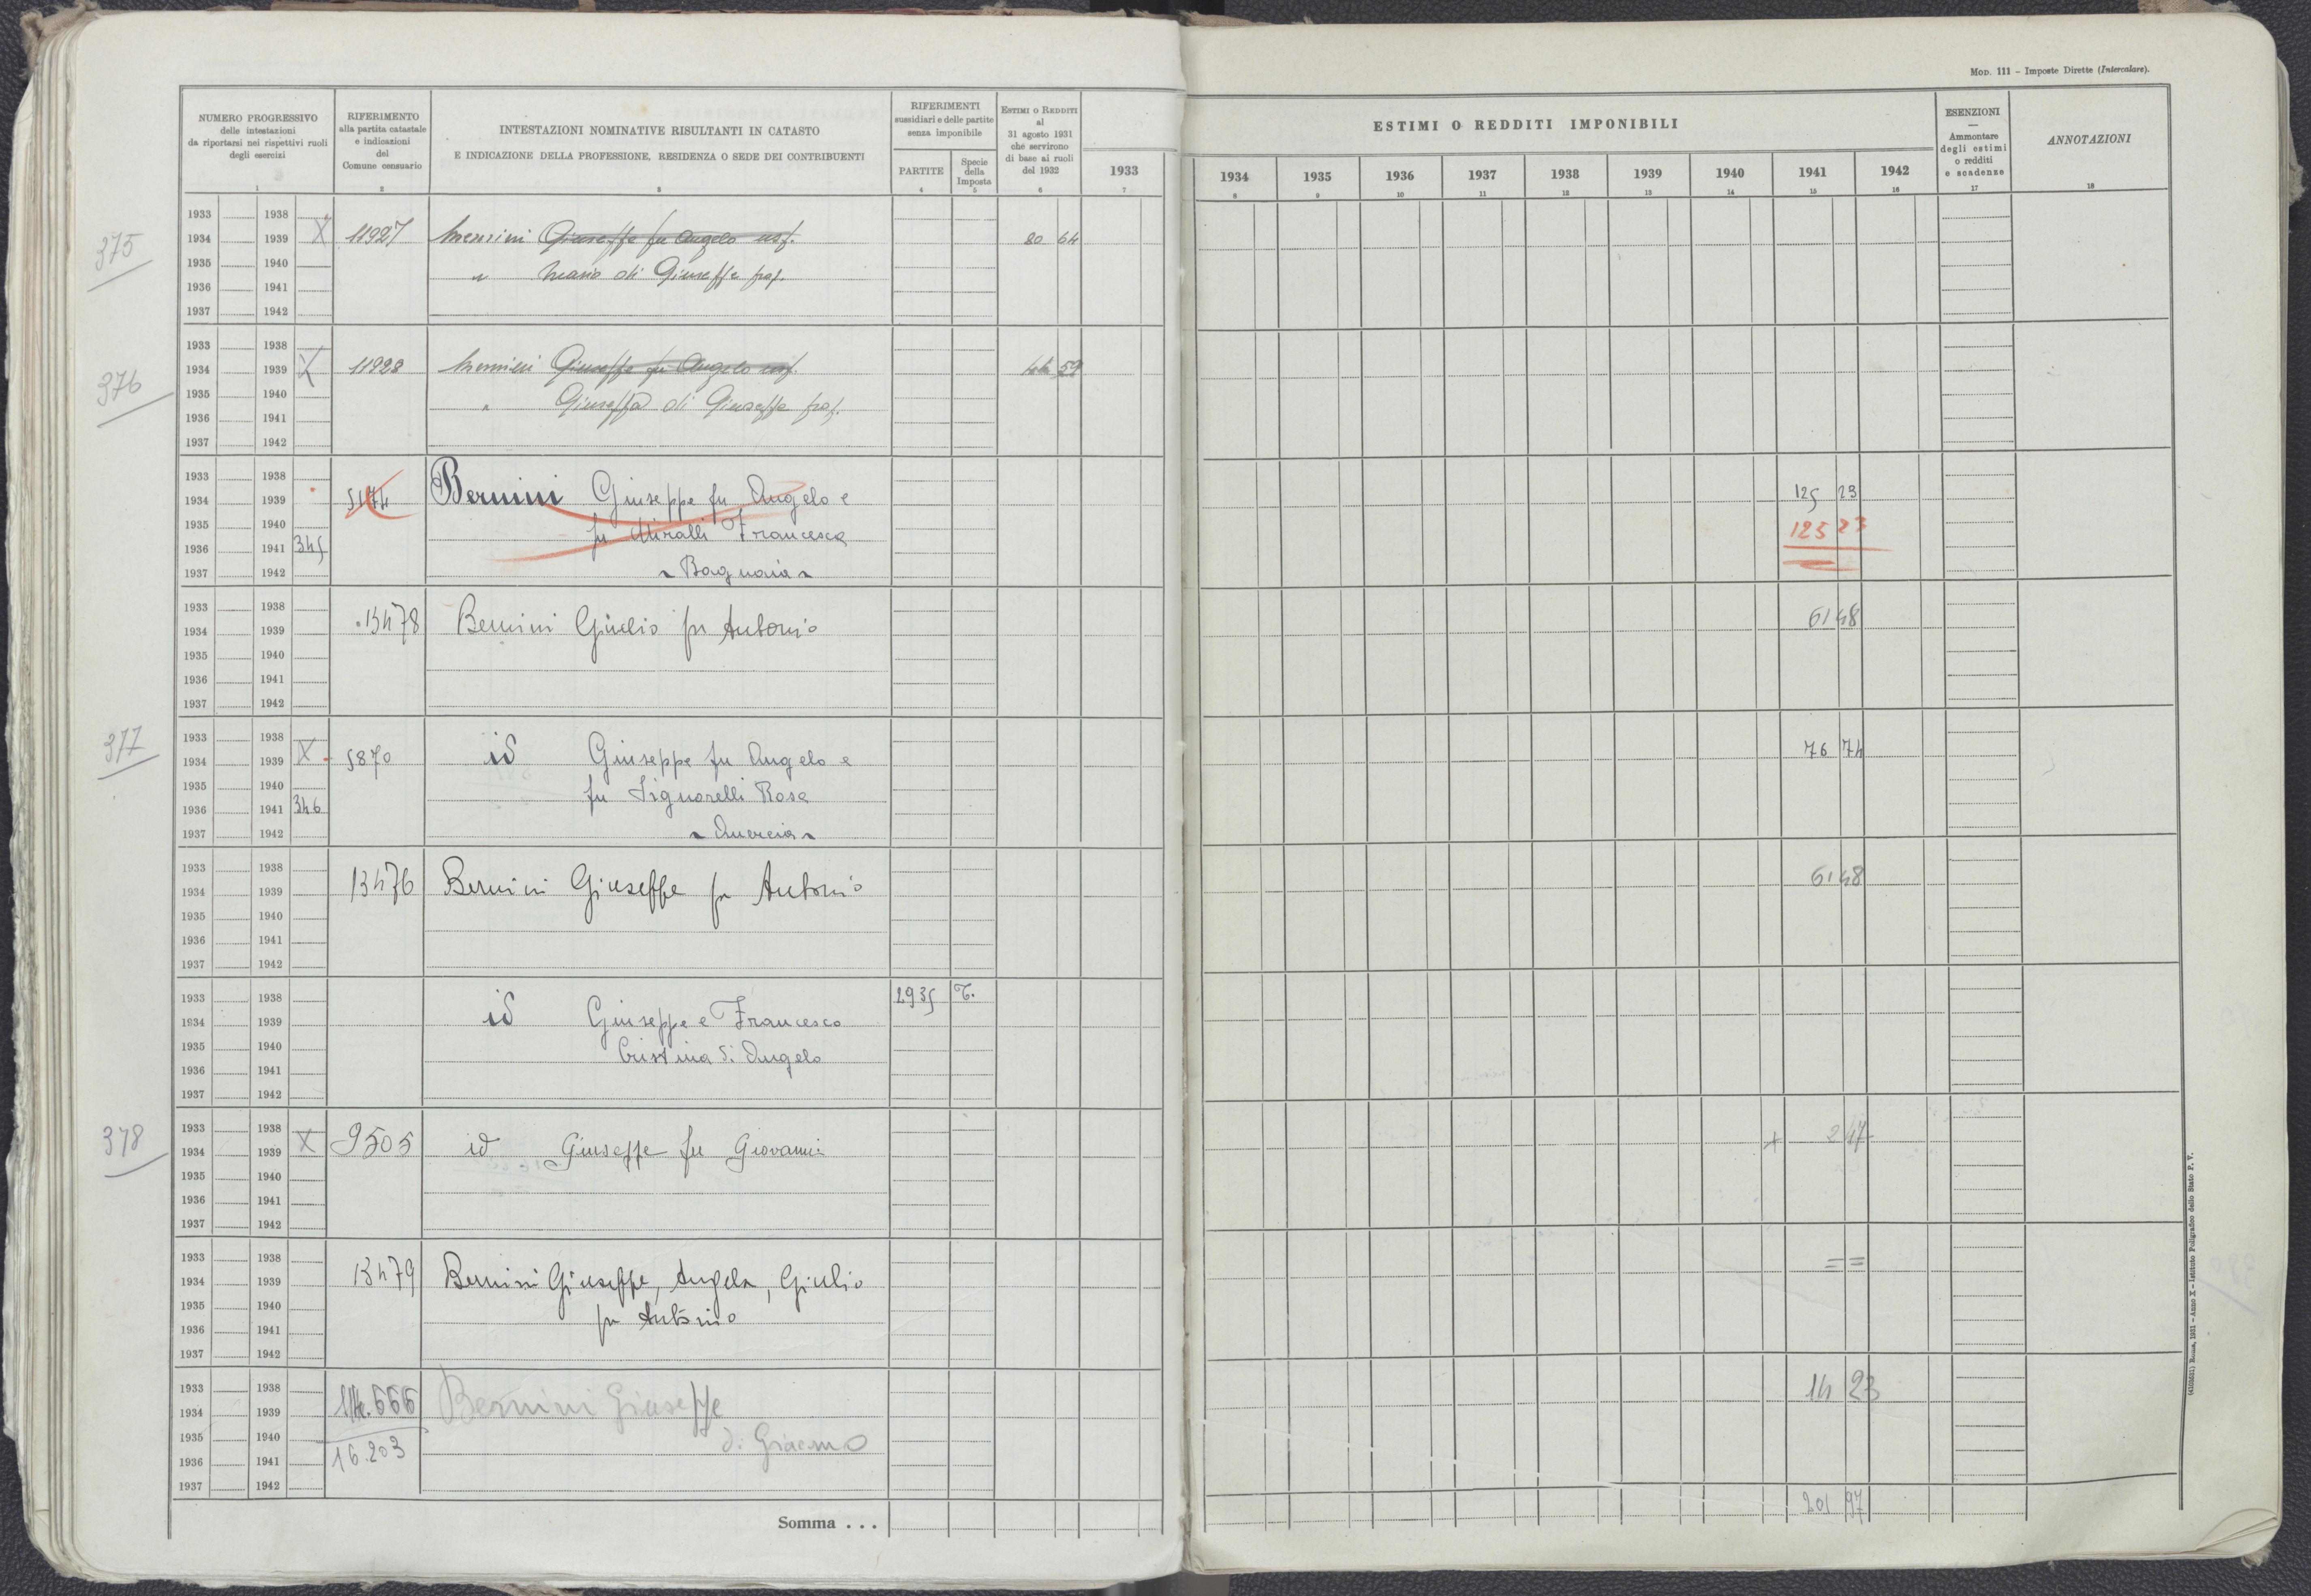 MOD. 111 - Imposte Dirette (Intercalare).
NUMERO PROGRESSIVO
delle intestazioni
da riportarsi nei rispettivi ruoli
degli esercizi
RIFERIMENTO
alla partita catastale
e indicazioni
del
Comune censuario
INTESTAZIONI NOMINATIVE RISULTANTI IN CATASTO
E INDICAZIONE DELLA PROFESSIONE, RESIDENZA O SEDE DEI CONTRIBUENTI
RIFERIMENTI
sussidiari e delle partite
senza imponibile
PARTITE
Specie
della
Imposta
ESTIMI O REDDITI
al
31 agosto 1931
che servirono
di base ai ruoli
del 1932
1933
ESTIMI O REDDITI IMPONIBILI
1934 1935 1936 1937 1938 1939 1940 1941 1942
ESENZIONI
—
Ammontare
degli estimi
o redditi
e scadenze
ANNOTAZIONI
1 2 3 4 5 6 7 8 9 10 11 12 13 14 15 16 17 18
375
1933 1938
1934 1939 X 11927 Giuseppe fu Angelo usf. 80 64
1935 1940 " Mario di Giuseppe prop.
1936 1941
1937 1942
376
1933 1938
1934 1939 X 11928 Giuseppe fu Angelo usf. 59
1935 1940
1936 1941 " Giuseppa di Giuseppe prop.
1937 1942
1933 1938
1934 1939 5174 Bernini Giuseppe fu Angelo e 125 23
1935 1940 fu Miralli Francesca 125 23
1936 1941 345
1937 1942 Bagnaia
1933 1938
1934 1939 13478 Bernini Giulio fu Antonio 61 48
1935 1940
1936 1941
1937 1942
377
1933 1938
1934 1939 X 5870 id Giuseppe fu Angelo e 76 74
1935 1940
1936 1941 346 fu Signorelli Rosa
1937 1942 Quercia
1933 1938
1934 1939 13476 Bernini Giuseppe fu Antonio 61 48
1935 1940
1936 1941
1937 1942
1933 1938 2935 T.
1934 1939 id Giuseppe e Francesco
1935 1940 Cristina di Angelo
1936 1941
1937 1942
378
1933 1938
1934 1939 X 9505 id Giuseppe fu Giovanni + 2 47
1935 1940
1936 1941
1937 1942
1933 1938 = =
1934 1939 13479 Bernini Giuseppe, Angela, Giulio
1935 1940
1936 1941 fu Antonio
1937 1942
1933 1938
1934 1939 114.666 Bernini Giuseppe 14 23
1935 1940 di Giacomo
1936 1941 16.203
1937 1942
Somma . . . 201 97
(4103651) Roma, 1931 - Anno X - Istituto Poligrafico dello Stato P. V.